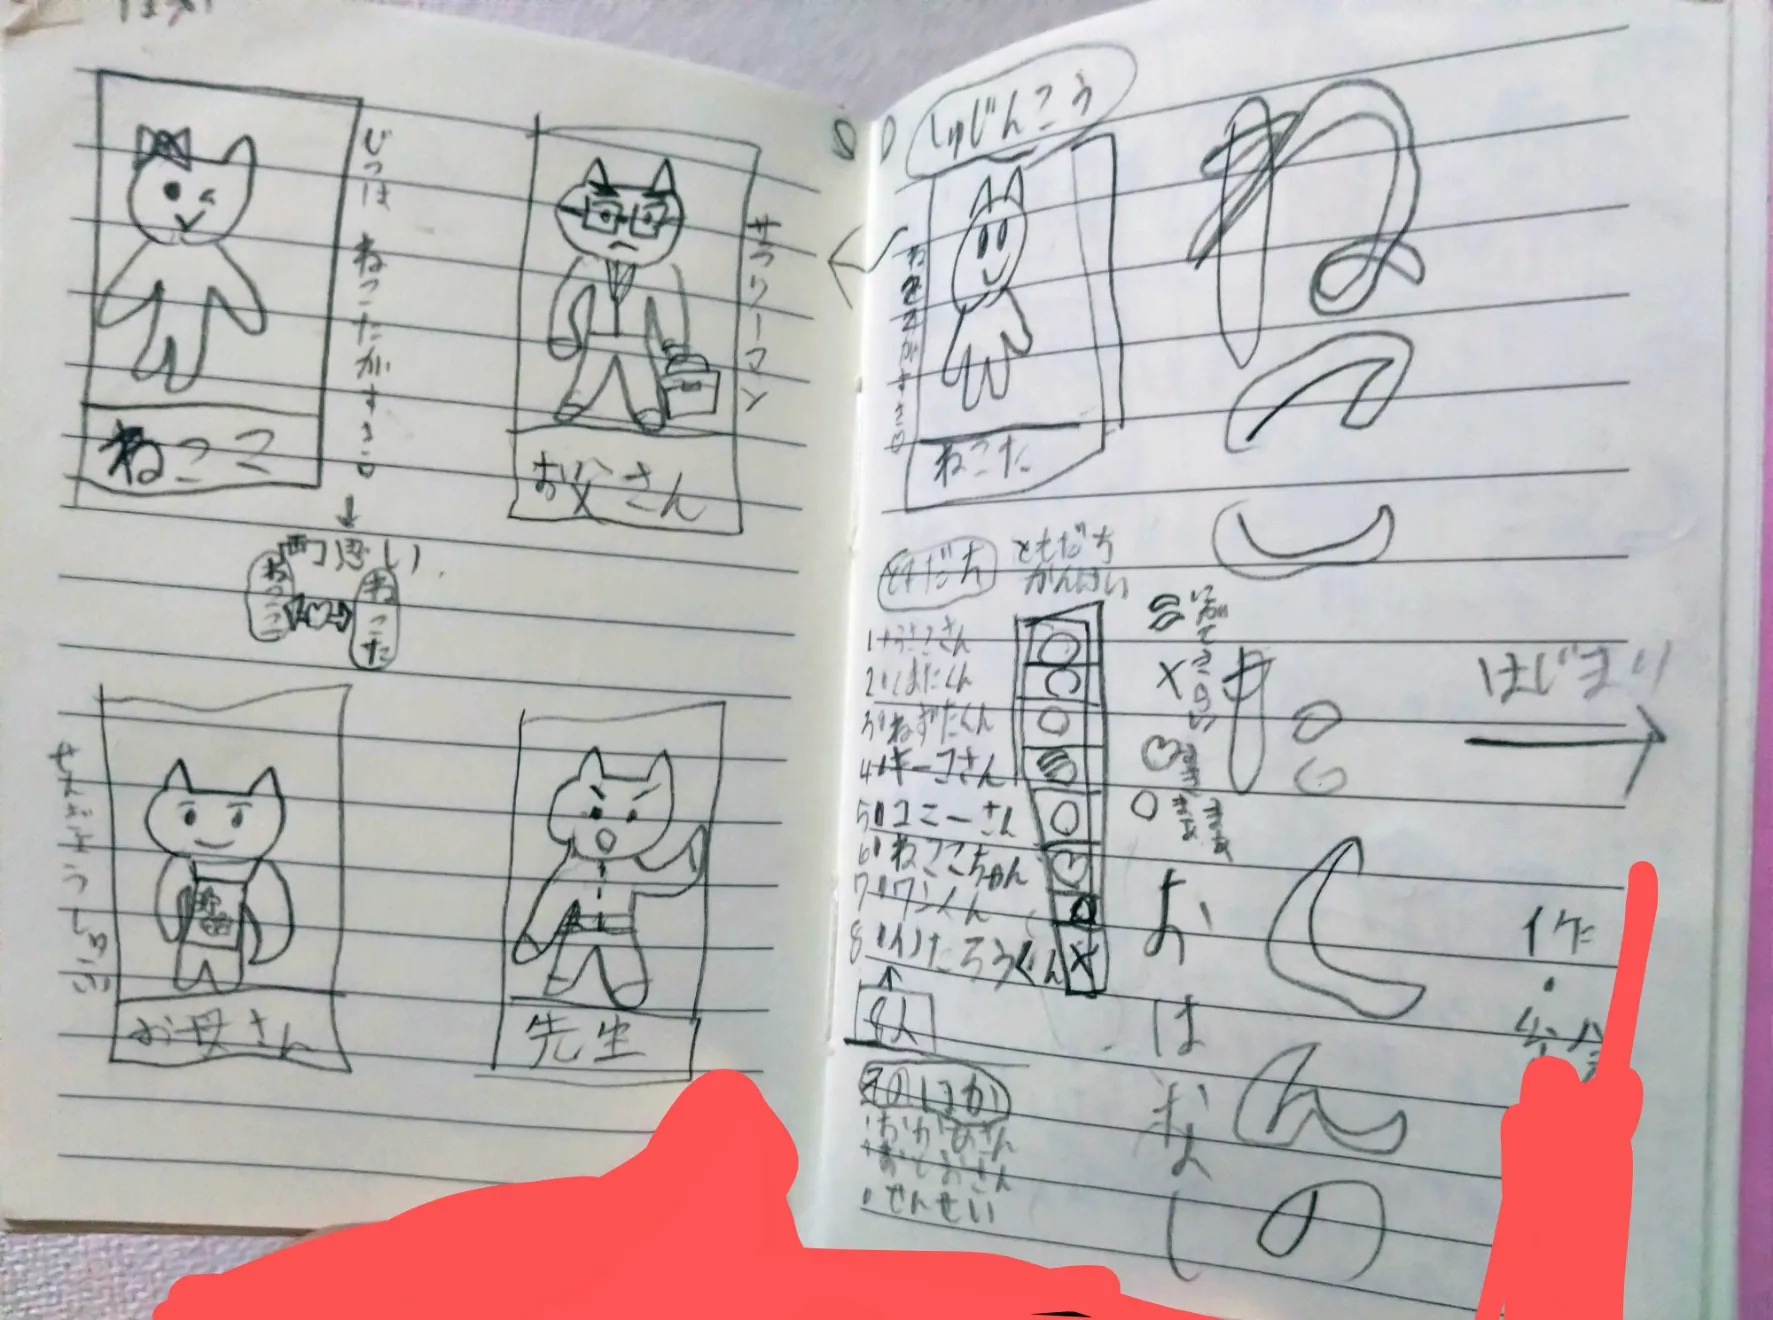 ねこ
たくんの
おはなし
はじまり
しゅじんこう
ねこた
ともだち
ともだち
かんけい
1 うさこさん
2 くまたくん
3 ねずたくん
4 キーコさん
5 コニーさん
6 ねここちゃん
7 ワンくん
8 いたろうくん
8人
そのほか
おかあさん
おとおさん
せんせい
サラリーマン
お父さん
じつは ねこたがすき
ねここ
両思い
ねここ
ねこた
せんぎょうしゅふ
お母さん
先生